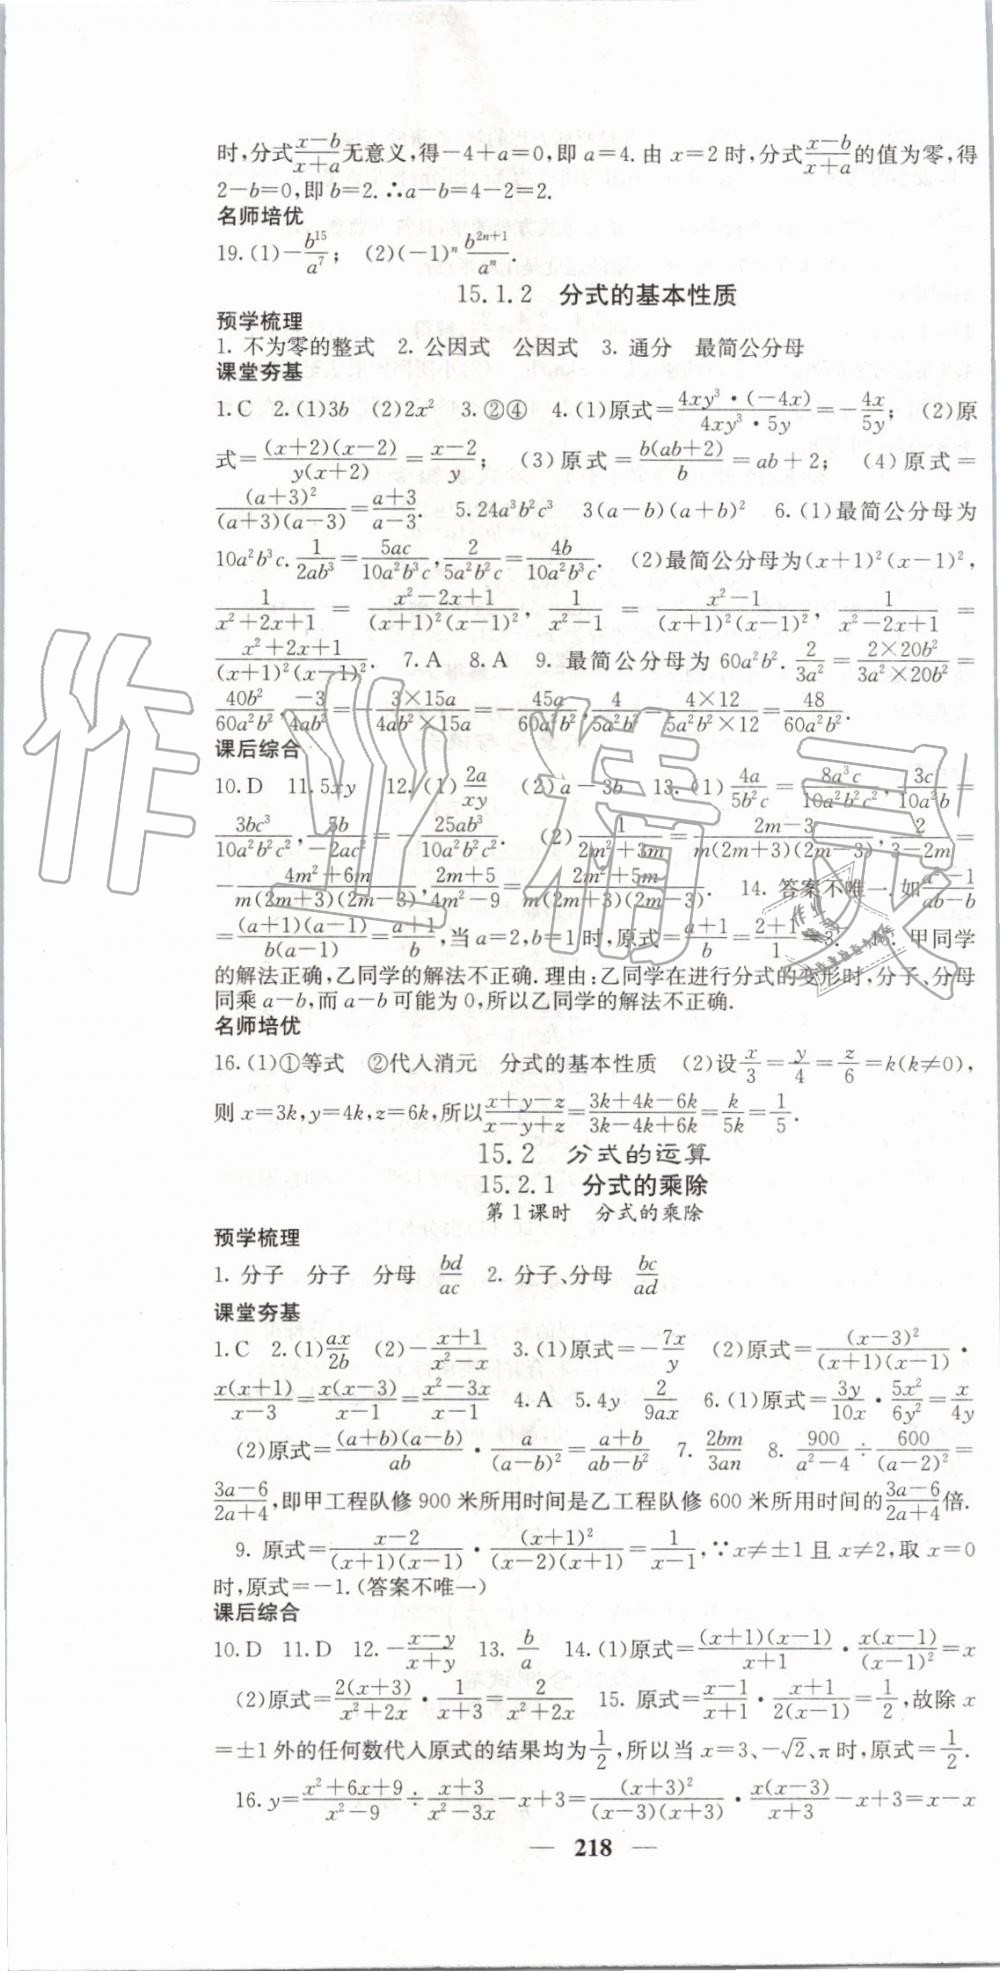 时,分式(x-b)/(x+a)无意义,得-4+a=0,即a=4.由x=2时,分式(x-b)/(x+a)的值为零,得
2-b=0,即b=2.∴a-b=4-2=2.
名师培优
19.(1)-b¹⁵/a⁷; (2)(-1)ⁿ b²ⁿ⁺¹/aⁿ.
15.1.2 分式的基本性质
预学梳理
1. 不为零的整式 2. 公因式 公因式 3. 通分 最简公分母
课堂夯基
1.C 2.(1)3b (2)2x² 3.②④ 4.(1)原式=4xy³·(-4x)/(4xy³·5y)=-4x/5y; (2)原
式=(x+2)(x-2)/y(x+2)=(x-2)/y; (3)原式=b(ab+2)/b=ab+2; (4)原式=
(a+3)²/(a+3)(a-3)=(a+3)/(a-3). 5.24a³b²c³ 3(a-b)(a+b)² 6.(1)最简公分母为
10a²b³c. 1/2ab³=5ac/10a²b³c, 2/5a²b²c=4b/10a²b³c. (2)最简公分母为(x+1)²(x-1)²,
1/(x²+2x+1)=(x²-2x+1)/(x+1)²(x-1)², 1/(x²-1)=(x²-1)/(x+1)²(x-1)², 1/(x²-2x+1)=
(x²+2x+1)/(x+1)²(x-1)². 7.A 8.A 9. 最简公分母为60a²b². 2/3a²=2×20b²/3a²×20b²=
40b²/60a²b², -3/4ab²=-3×15a/4ab²×15a=-45a/60a²b², 4/5a²b²=4×12/5a²b²×12=48/60a²b².
课后综合
10.D 11.5xy 12.(1)2a/xy (2)a-3b 13.(1)4a/5b²c=8a³c/10a²b²c², 3c/10a²b=
3bc³/10a²b²c², 5b/-2ac²=-25ab³/10a²b²c². (2)1/(2m²+3m)=(2m-3)/m(2m+3)(2m-3), 2/(3-2m)=
-(4m²+6m)/m(2m+3)(2m-3), (2m+5)/(4m²-9)=(2m²+5m)/m(2m+3)(2m-3). 14. 答案不唯一.如(a²-1)/(ab-b)
=(a+1)(a-1)/b(a-1)=(a+1)/b,当a=2,b=1时,原式=(a+1)/b=(2+1)/1=3. 甲同学
的解法正确,乙同学的解法不正确.理由:乙同学在进行分式的变形时,分子、分母
同乘a-b,而a-b可能为0,所以乙同学的解法不正确.
名师培优
16.(1)①等式 ②代入消元 分式的基本性质 (2)设x/3=y/4=z/6=k(k≠0),
则x=3k,y=4k,z=6k,所以(x+y-z)/(x-y+z)=(3k+4k-6k)/(3k-4k+6k)=k/5k=1/5.
15.2 分式的运算
15.2.1 分式的乘除
第1课时 分式的乘除
预学梳理
1. 分子 分子 分母 bd/ac 2. 分子、分母 bc/ad
课堂夯基
1.C 2.(1)ax/2b (2)-(x+1)/(x²-x) 3.(1)原式=-7x/y (2)原式=(x-3)²/(x+1)(x-1)·
x(x+1)/(x-3)=x(x-3)/(x-1)=(x²-3x)/(x-1) 4.A 5.4y 2/9ax 6.(1)原式=3y/10x·5x²/6y²=x/4y
(2)原式=(a+b)(a-b)/ab·a/(a-b)²=(a+b)/(ab-b²) 7. 2bm/3an 8. 900/(a²-4)÷600/(a-2)²=
(3a-6)/(2a+4),即甲工程队修900米所用时间是乙工程队修600米所用时间的(3a-6)/(2a+4)倍.
9. 原式=(x-2)/(x+1)(x-1)·(x+1)²/(x-2)(x+1)=1/(x-1),∵x≠±1且x≠2,取x=0
时,原式=-1.(答案不唯一)
课后综合
10.D 11.D 12.-(x-y)/(x+y) 13. b/a 14.(1)原式=(x+1)(x-1)/(x+1)·x(x-1)/(x-1)²=x
(2)原式=2(x+3)/(x²+2x)·1/(x+3)=2/(x²+2x) 15. 原式=(x-1)/(x+1)·(x+1)/2(x-1)=1/2,故除x
=±1外的任何数代入原式的结果均为1/2,所以当x=3、-√2、π时,原式=1/2.
16.y=(x²+6x+9)/(x²-9)÷(x+3)/(x²-3x)-x+3=(x+3)²/(x-3)(x+3)·x(x-3)/(x+3)-x+3=x-x
— 218 —
作业精灵